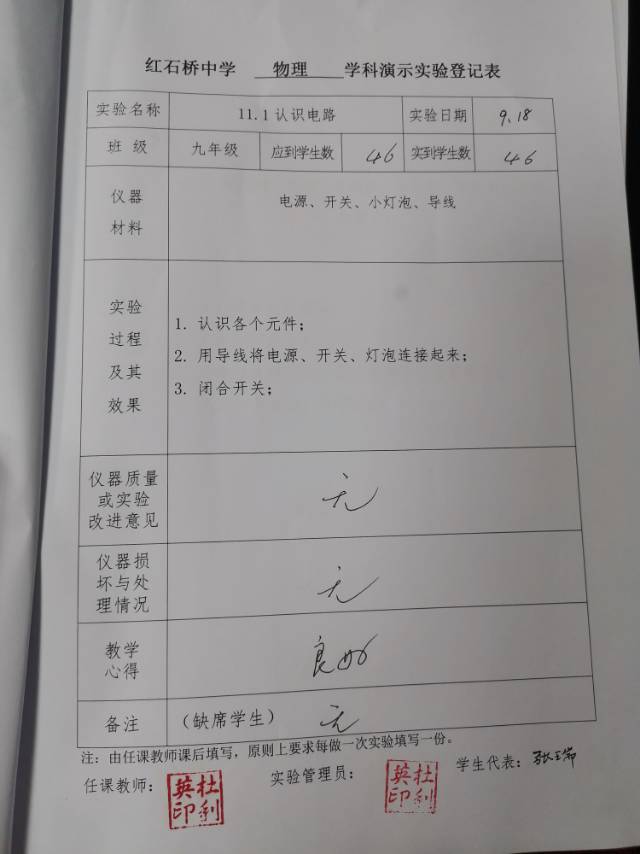 红石桥中学 物理 学科演示实验登记表
实验名称 11.1认识电路 实验日期 9.18
班 级 九年级 应到学生数 46 实到学生数 46
仪器
材料
电源、开关、小灯泡、导线
实验
过程
及其
效果
1. 认识各个元件;
2. 用导线将电源、开关、灯泡连接起来;
3. 闭合开关;
仪器质量
或实验
改进意见
无
仪器损
坏与处
理情况
无
教学
心得
良好
备注 (缺席学生) 无
注: 由任课教师课后填写,原则上要求每做一次实验填写一份。
任课教师: 杜利英印 实验管理员: 杜利英印 学生代表: 张